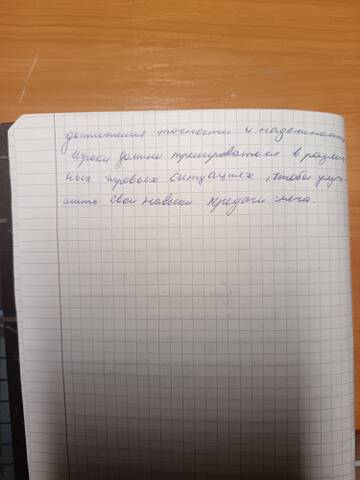 достижения точности и надежности
Игроки должны тренироваться в различ
ных игровых ситуациях, чтобы улуч
шить свои навыки передачи мяча.